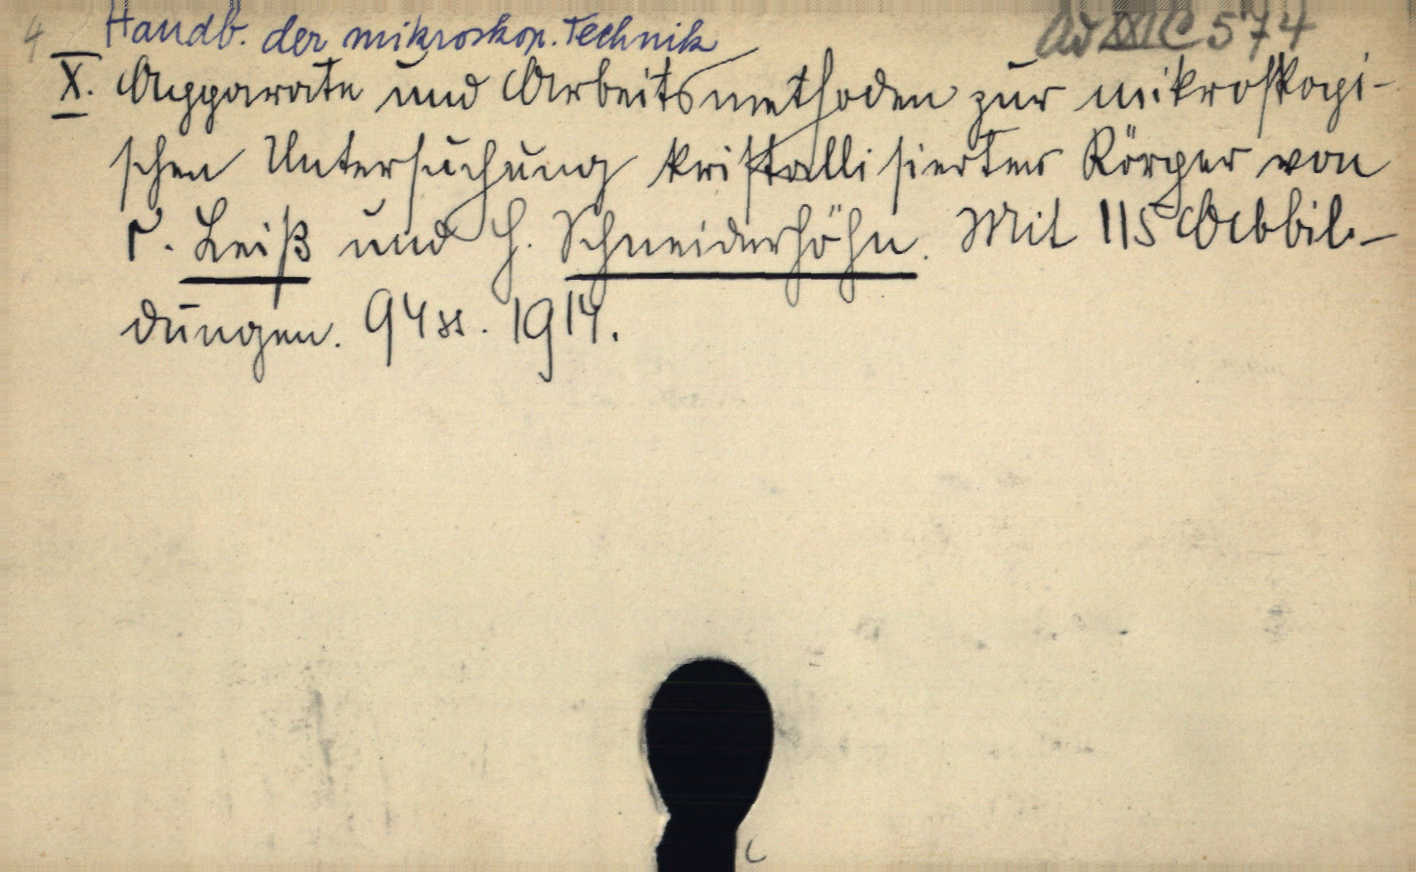 4 Handb. der mikroskop. Technik Ad XXIC 574
X. Apparate und Arbeitsmethoden zur mikroskopi-
schen Untersuchung kristallisierter Körper von
C. Leiß und H. Schneiderhöhn. Mit 115 Abbil-
dungen. 94 ss. 1914.